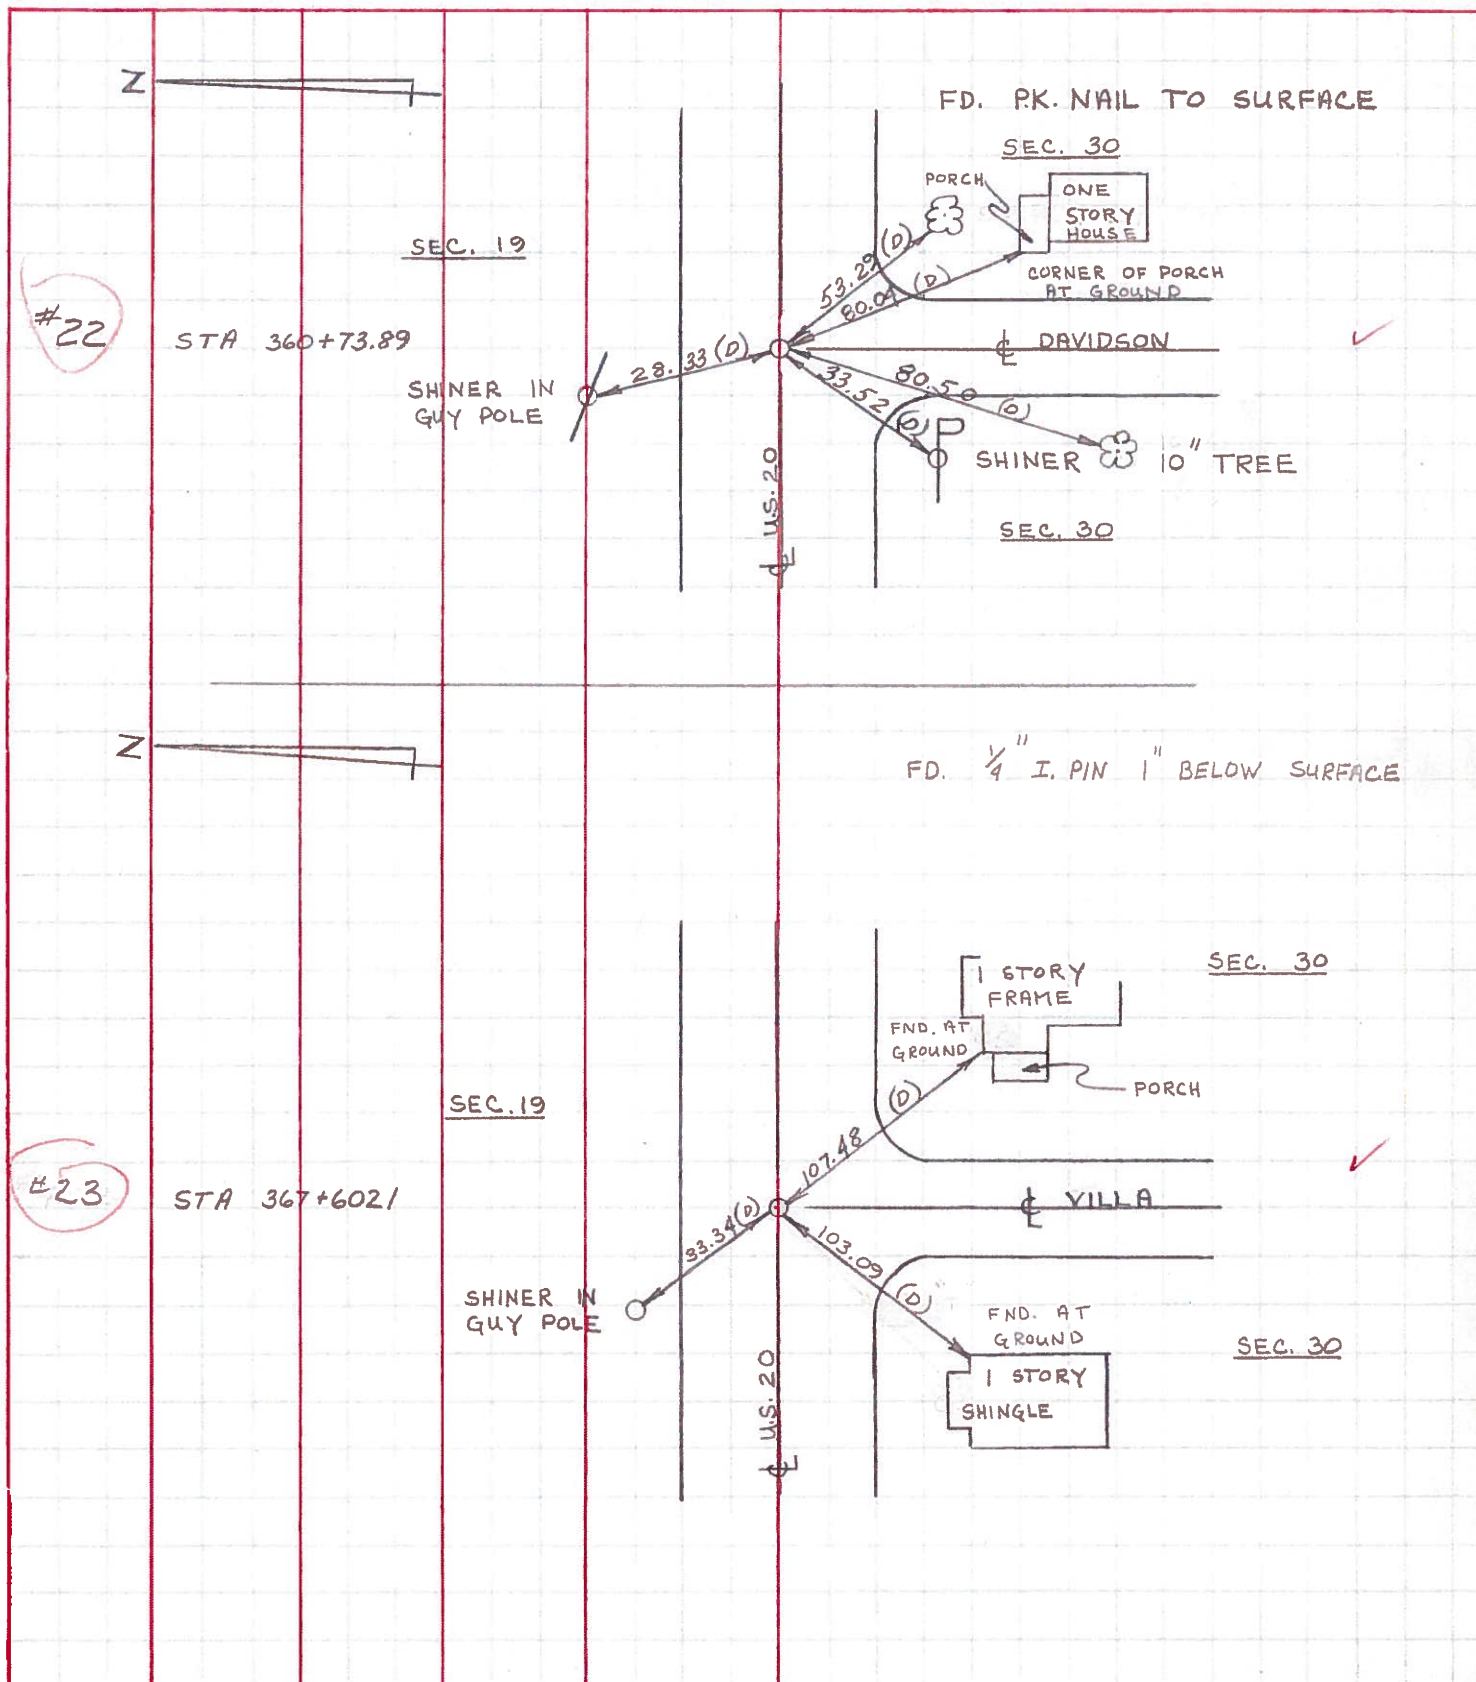 Z
FD. P.K. NAIL TO SURFACE
SEC. 30
PORCH
ONE
STORY
HOUSE
SEC. 19
53.29 (D)
80.09 (D)
CORNER OF PORCH
AT GROUND
#22
STA 360+73.89
℄ DAVIDSON
28.33 (D)
SHINER IN
GUY POLE
80.50 (D)
33.52 (D)
SHINER
10" TREE
℄ U.S. 20
SEC. 30
Z
FD. 1/4" I. PIN 1" BELOW SURFACE
1 STORY
FRAME
SEC. 30
FND. AT
GROUND
PORCH
SEC. 19
107.48 (D)
#23
STA 367+6021
℄ VILLA
33.34 (D)
103.09 (D)
SHINER IN
GUY POLE
FND. AT
GROUND
SEC. 30
1 STORY
SHINGLE
℄ U.S. 20